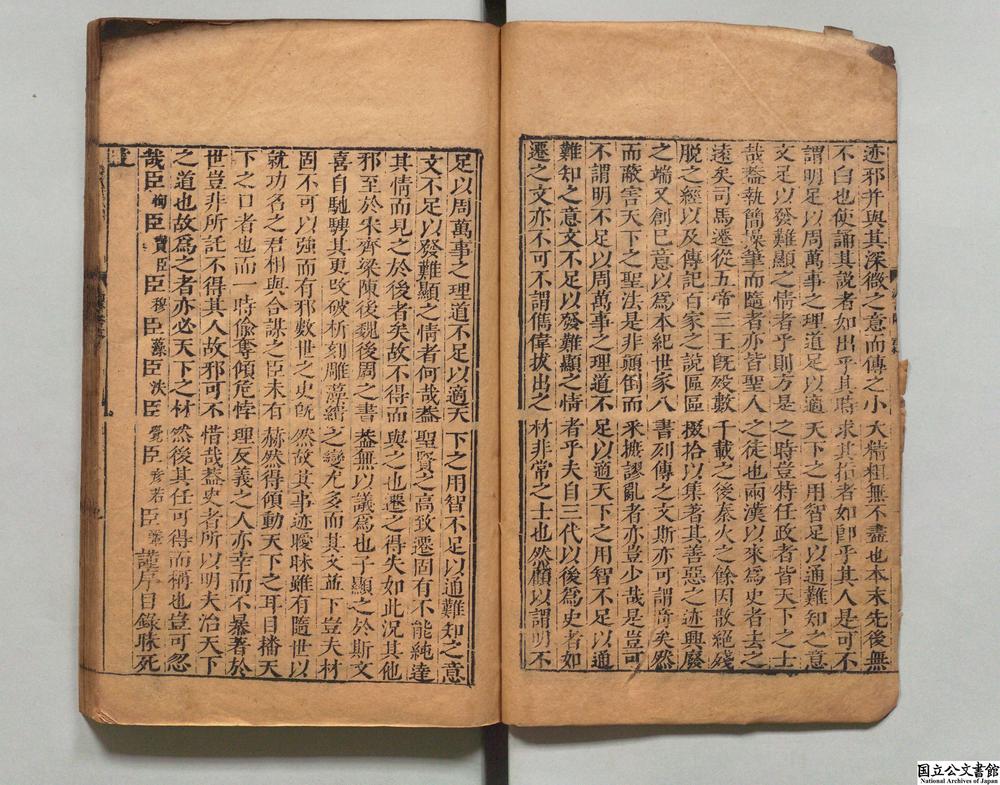 迹邪并與其深微之意而傳之小大精粗無不盡也本末先後無
不白也使誦其說者如出乎其時求其指者如卽乎其人是可不
謂明足以周萬事之理道足以適天下之用智足以通難知之意
文足以發難顯之情者乎則方是之時豈特任政者皆天下之士
哉葢執簡操筆而隨者亦皆聖人之徒也兩漢以來爲史者去之
遠矣司馬遷從五帝三王旣歿數千載之後秦火之餘因散絕殘
脫之經以及傳記百家之說區區掇拾以集著其善惡之迹興廢
之端又創巳意以爲本紀世家八書列傳之文斯亦可謂奇矣然
而蔽害天下之聖法是非顛倒而采摭謬亂者亦豈少哉是豈可
不謂明不足以周萬事之理道不足以適天下之用智不足以通
難知之意文不足以發難顯之情者乎夫自三代以後爲史者如
遷之文亦不可不謂儁偉拔出之材非常之士也然顧以謂明不
足以周萬事之理道不足以適天下之用智不足以通難知之意
文不足以發難顯之情者何哉葢聖賢之高致遷固有不能純達
其情而見之於後者矣故不得而與之也遷之得失如此況其他
邪至於宋齊梁陳後魏後周之書葢無以議爲也子顯之於斯文
喜自馳騁其更改破析刻雕藻繢之變尤多而其文益下豈夫材
固不可以強而有邪數世之史旣然故其事迹曖昧雖有隨世以
就功名之君相與合謀之臣未有赫然得傾動天下之耳目播天
下之口者也而一時偸奪傾危悖理反義之人亦幸而不暴著於
世豈非所託不得其人故邪可不惜哉葢史者所以明夫治天下
之道也故爲之者亦必天下之材然後其任可得而稱也豈可忽
哉臣恂臣寶臣臣穆臣藻臣洙臣覺臣彥若臣鞏謹序目錄昧死
国立公文書館
National Archives of Japan